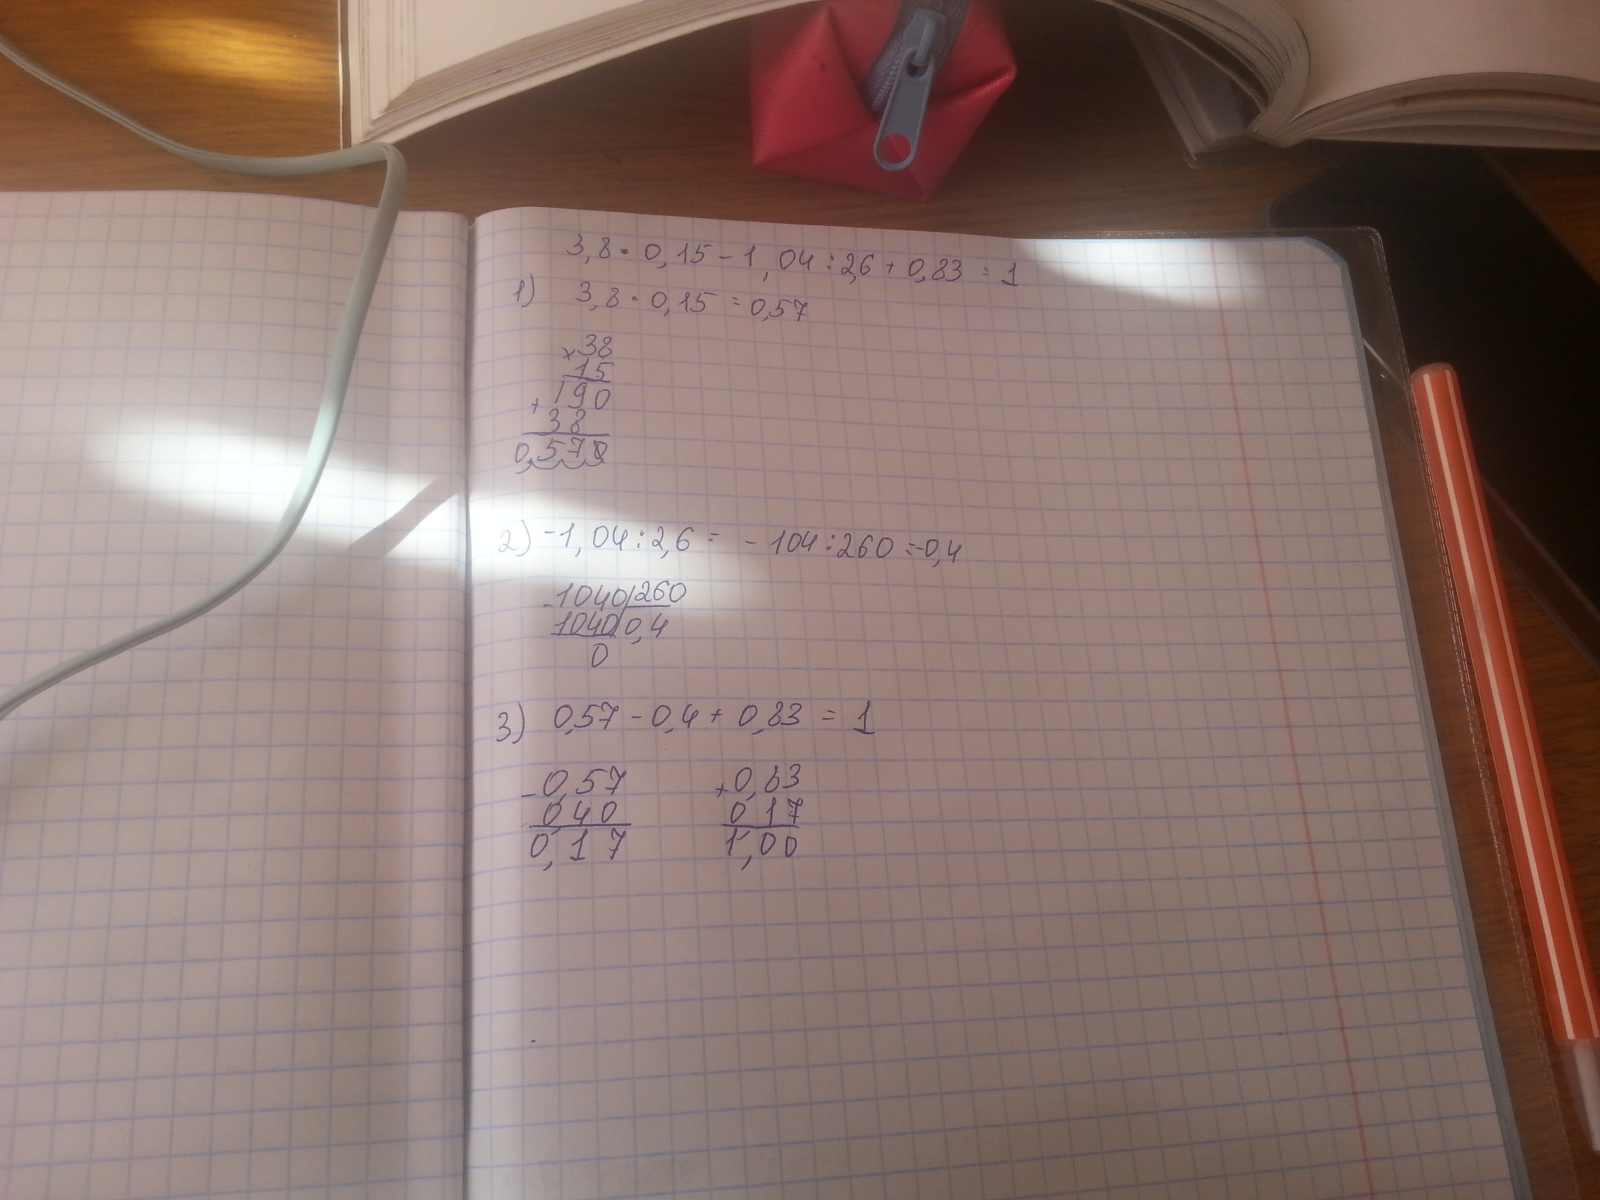 3,8 · 0,15 - 1,04 : 2,6 + 0,83 = 1
1) 3,8 · 0,15 = 0,57
× 38
15
+ 190
38
0,570
2) -1,04 : 2,6 = - 104 : 260 = -0,4
- 1040 | 260
1040 | 0,4
0
3) 0,57 - 0,4 + 0,83 = 1
- 0,57 + 0,83
0,40 0,17
0,17 1,00